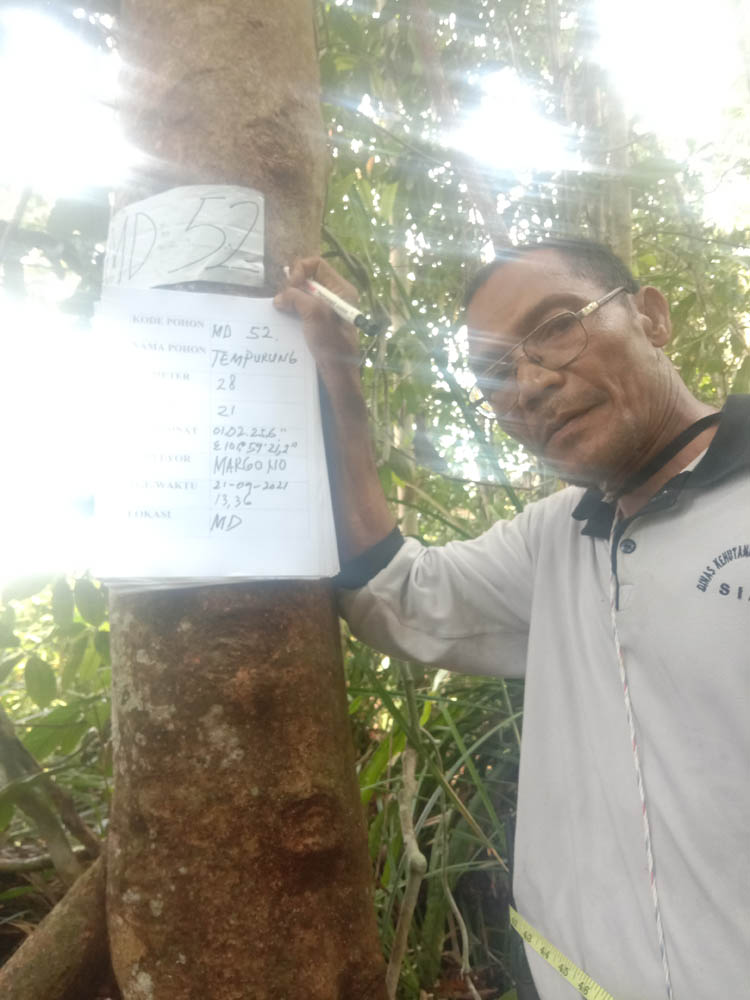 MD 52
KODE POHON MD 52.
NAMA POHON TEMPURUNG
METER 28
21
NAT 01.02.25.6"
E 101° 59' 26,2"
YOR MARGONO
WAKTU 21-09-2021
13,36
LOKASI MD
DINAS KEHUTANA
SI
43 44 45 46